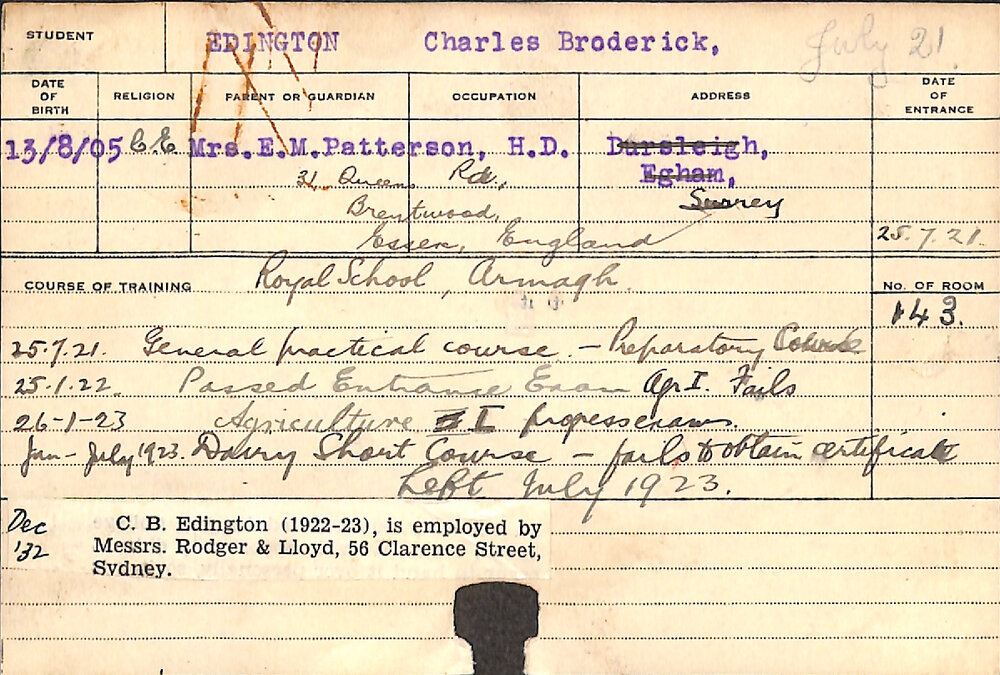 STUDENT EDINGTON Charles Broderick, July 21
DATE OF BIRTH RELIGION PARENT OR GUARDIAN OCCUPATION ADDRESS DATE OF ENTRANCE
13/8/05 C.E Mrs.E.M.Patterson, H.D. Dursleigh,
31 Queens Rd., Egham,
Brentwood, Surrey
Essex, England 25.7.21.
COURSE OF TRAINING Royal School, Armagh. No. OF ROOM
143.
25.7.21. General practical course. - Preparatory Course
25.1.22. Passed Entrance Exam Agr I. Fails
26-1-23 Agriculture I progress exams.
Jan - July 1923. Dairy Short Course - fails to obtain certificate
Left July 1923.
Dec '32
C. B. Edington (1922-23), is employed by
Messrs. Rodger & Lloyd, 56 Clarence Street,
Sydney.